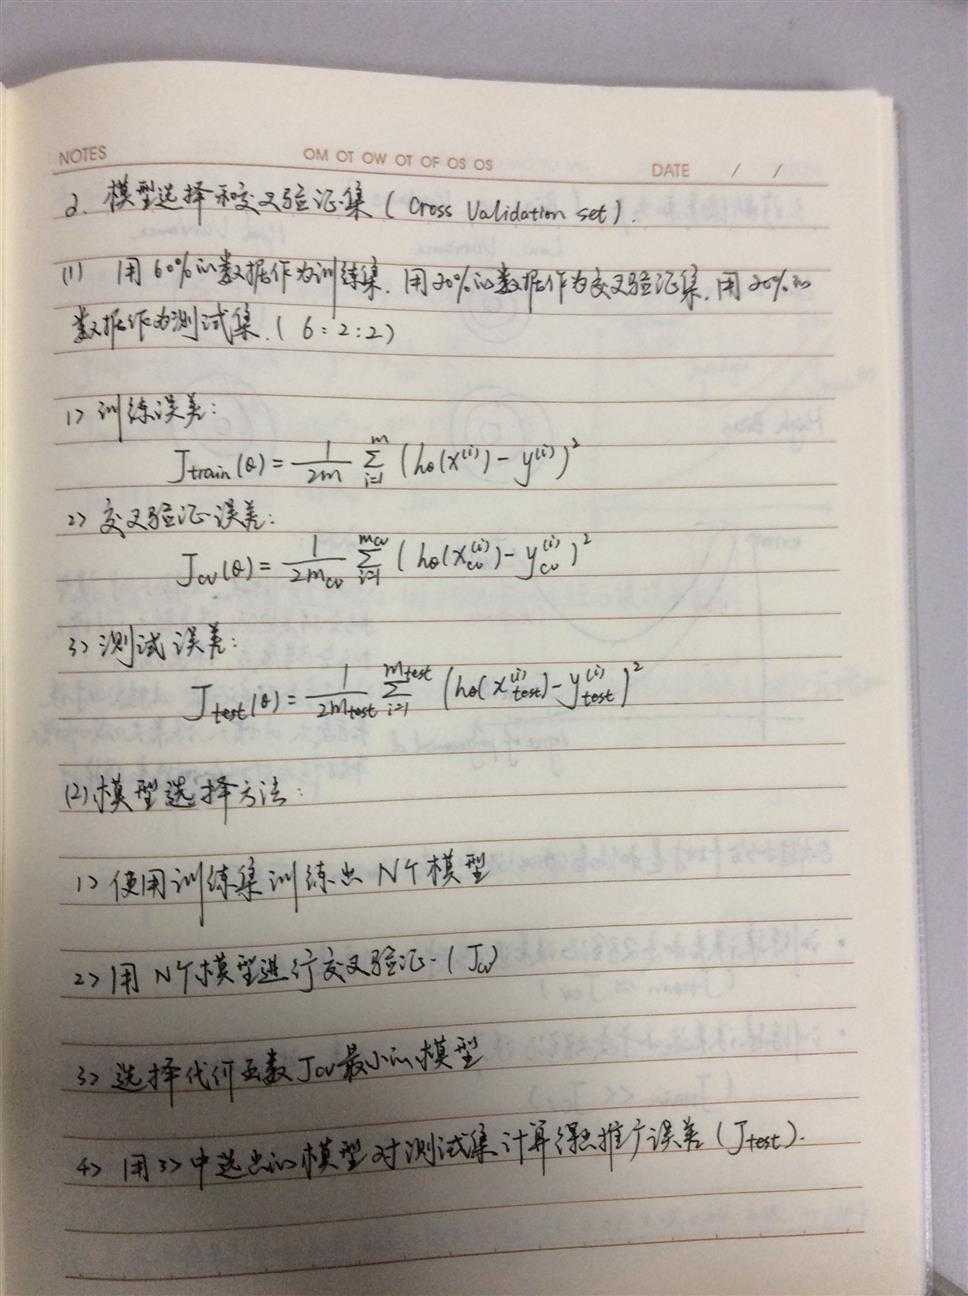 NOTES OM OT OW OT OF OS OS DATE / /
2. 模型选择和交叉验证集 (Cross Validation set).
(1) 用60%的数据作为训练集. 用20%的数据作为交叉验证集. 用20%的
数据作为测试集. (6:2:2)
1> 训练误差:
J_train(θ) = \frac{1}{2m} \sum_{i=1}^{m} (h_θ(x^{(i)}) - y^{(i)})^2
2> 交叉验证误差:
J_cv(θ) = \frac{1}{2m_{cv}} \sum_{i=1}^{m_{cv}} (h_θ(x_{cv}^{(i)}) - y_{cv}^{(i)})^2
3> 测试误差:
J_test(θ) = \frac{1}{2m_{test}} \sum_{i=1}^{m_{test}} (h_θ(x_{test}^{(i)}) - y_{test}^{(i)})^2
(2) 模型选择方法:
1> 使用训练集训练出N个模型
2> 用N个模型进行交叉验证. (Jcv)
3> 选择代价函数Jcv最小的模型
4> 用3>中选出的模型对测试集计算得出推广误差 (Jtest).